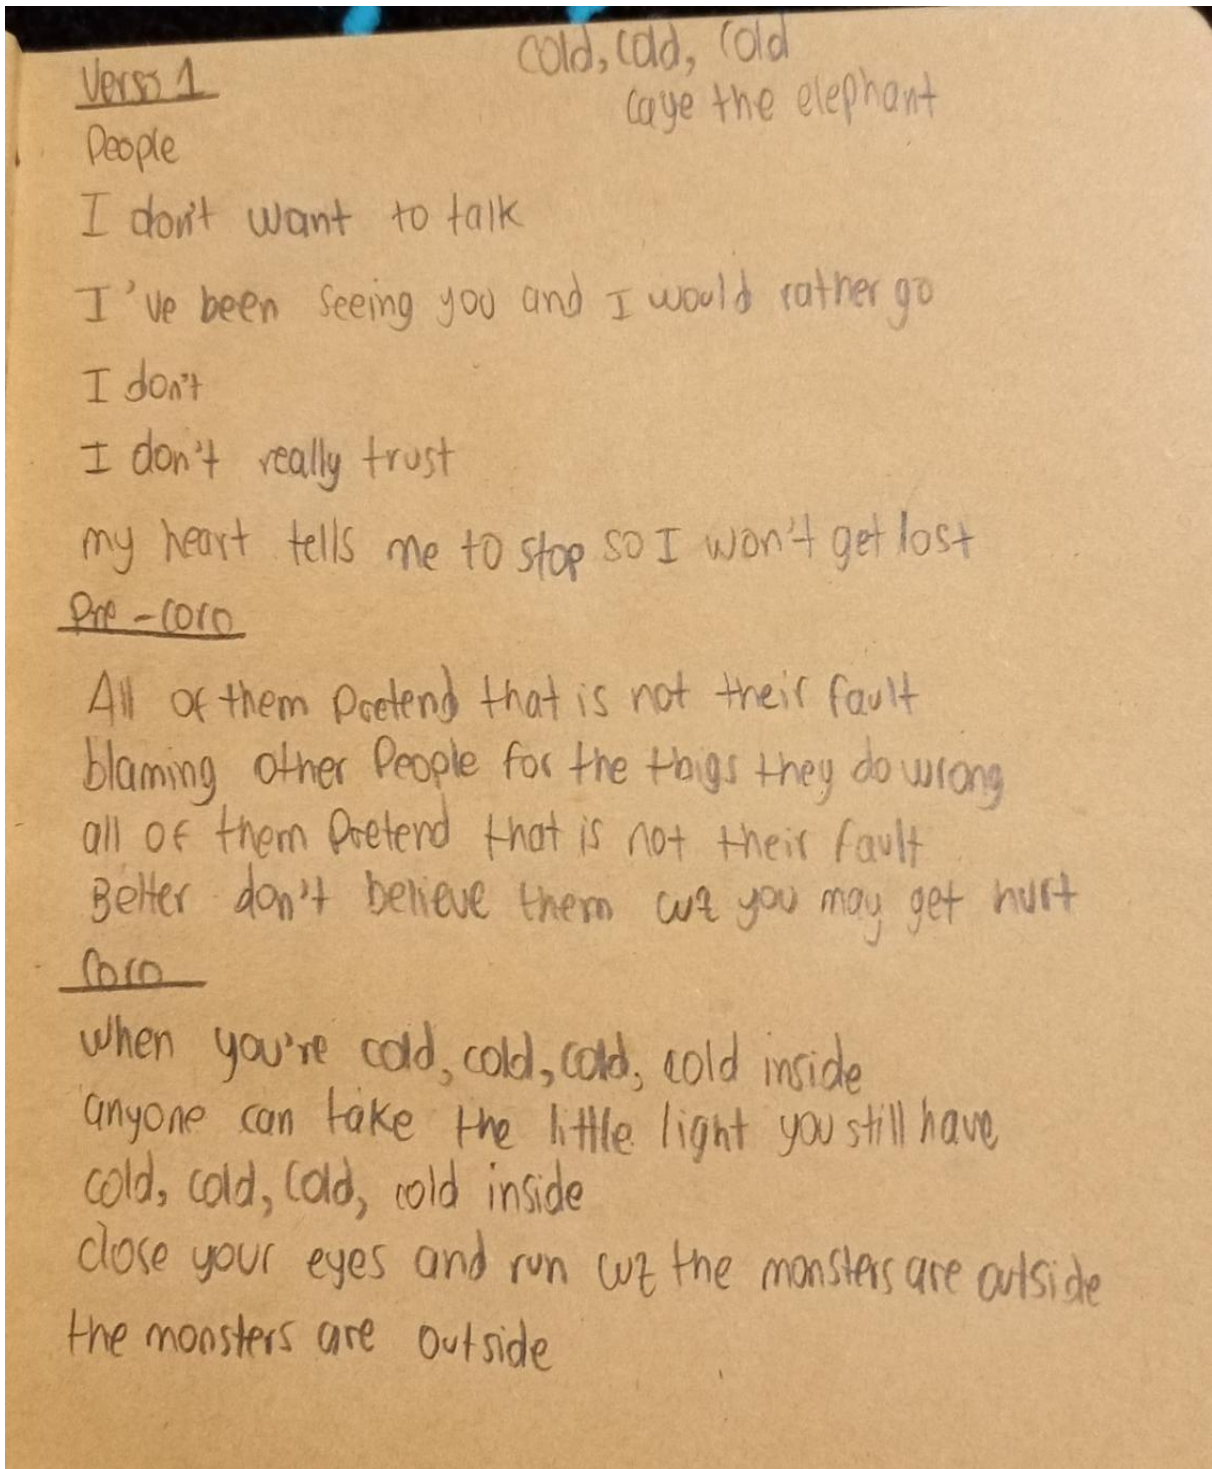 cold, cold, cold
caye the elephant
Verso 1
People
I don't want to talk
I've been seeing you and I would rather go
I don't
I don't really trust
my heart tells me to stop so I won't get lost
Pre-coro
All of them Pretend that is not their fault
blaming other People for the thigs they do wrong
all of them Pretend that is not their fault
Better don't believe them cuz you may get hurt
Coro
when you're cold, cold, cold, cold inside
anyone can take the little light you still have
cold, cold, cold, cold inside
close your eyes and run cuz the monsters are outside
the monsters are outside